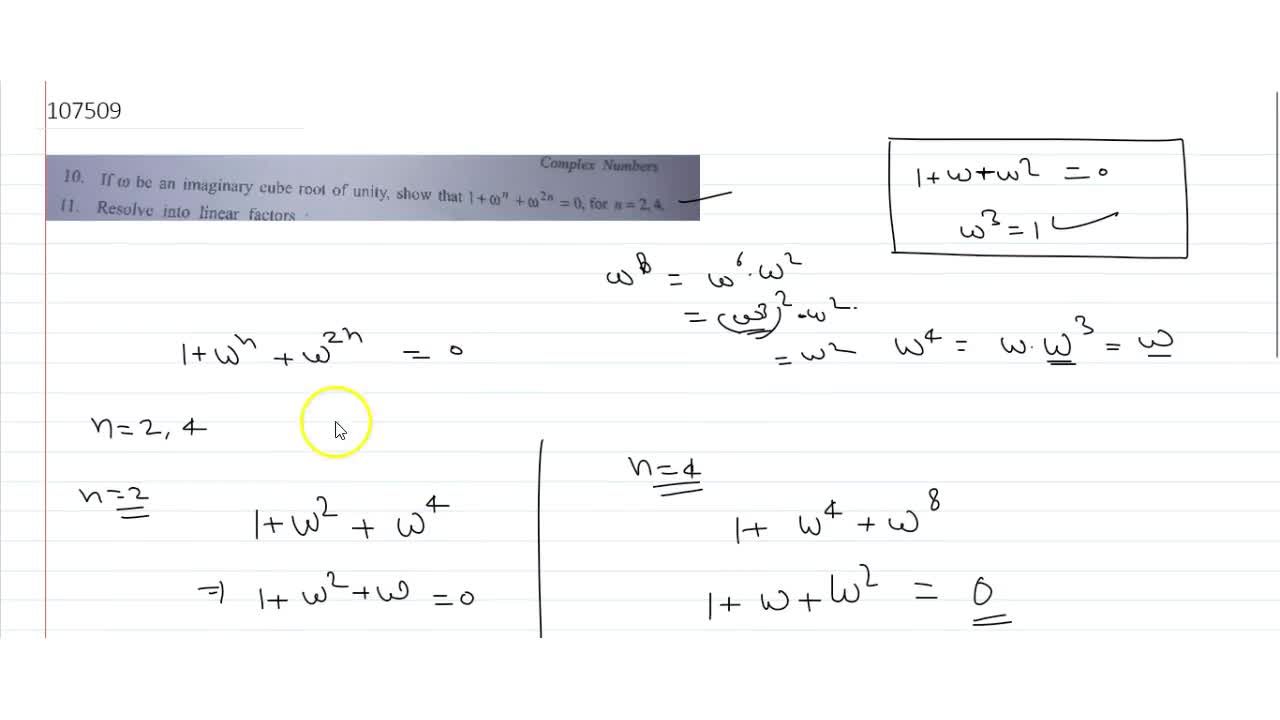 107509
Complex Numbers
10. If ω be an imaginary cube root of unity, show that 1 + ωⁿ + ω²ⁿ = 0, for n = 2, 4.
11. Resolve into linear factors
1+ω+ω² = 0
ω³ = 1
ω⁸ = ω⁶·ω²
= (ω³)²·ω²
= ω²
ω⁴ = ω·ω³ = ω
1+ωⁿ + ω²ⁿ = 0
n=2, 4
n=2
1+ω² + ω⁴
⇒ 1+ ω²+ω =0
n=4
1+ ω⁴+ω⁸
1+ ω+ω² = 0